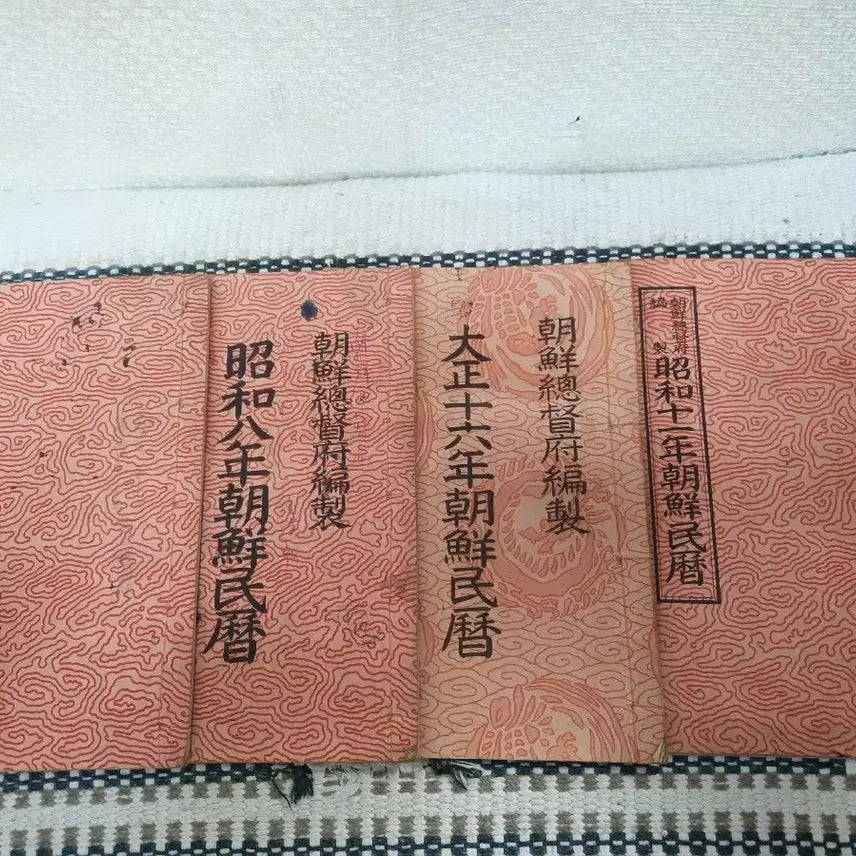 朝鮮總督府編製
昭和八年朝鮮民暦
朝鮮總督府編製
大正十六年朝鮮民暦
朝鮮總督府
編製
昭和十一年朝鮮民暦